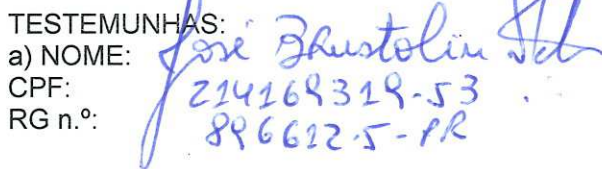 TESTEMUNHAS:
a) NOME: José
CPF: 214169319-53
RG n.º: 896612-5-PR